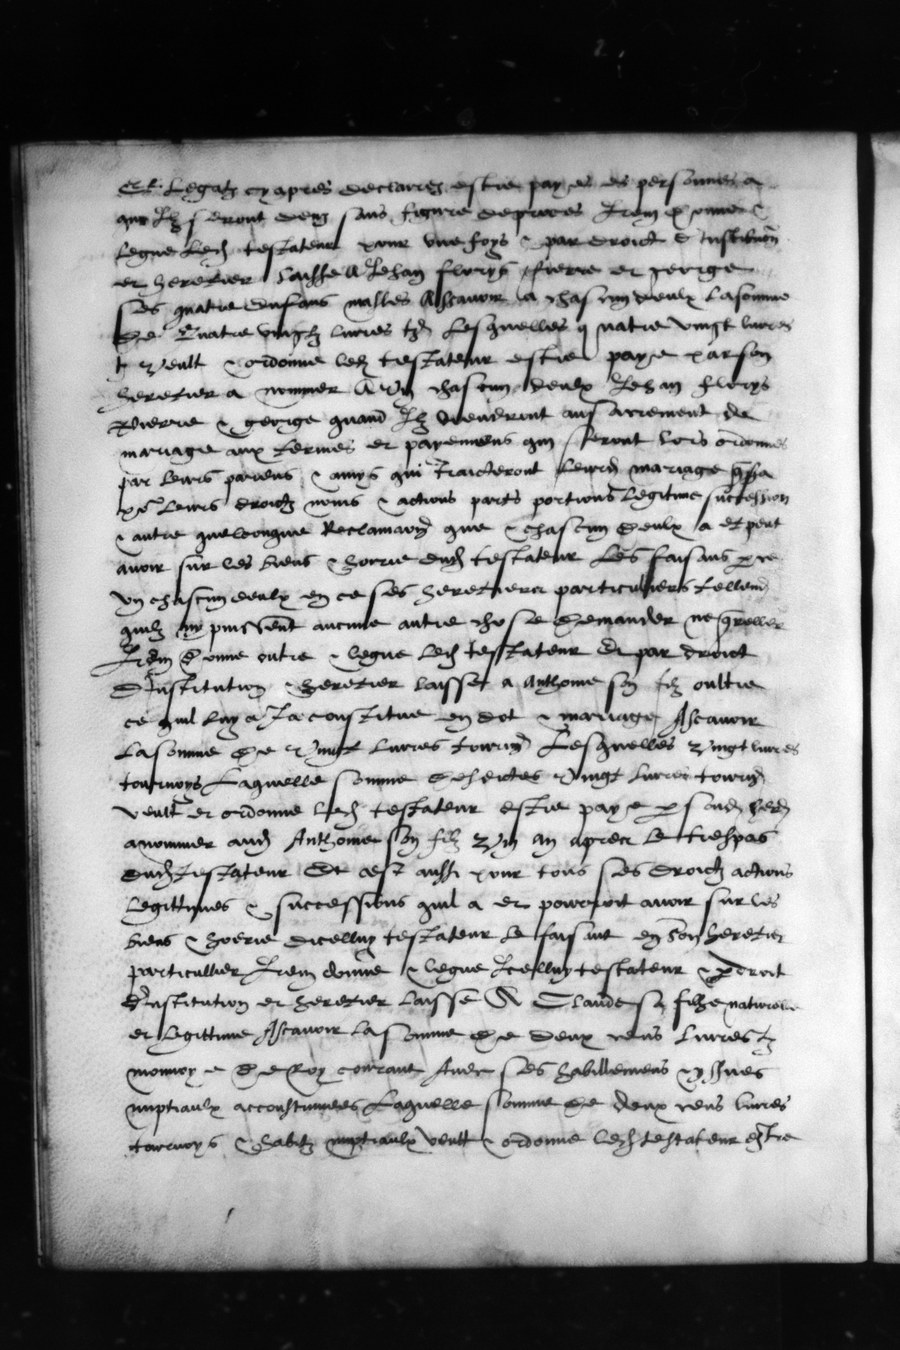 Et legatz cy apres declarez estre payes es personnes a
qui Ilz seront deuz sans figure de proces Item donne &
legue led testateur pour une foys & par droict d Institution
et heretier laisse A Jehan florys pierre et george
ses quatre enfans masles Ascavoir a chascun deulx la somme
de Quatre vingtz livres tz Lesquelles quatre vingt livres
tz veult & ordonne led testateur estre paye par son
heretier a nommer A Un chascun deulx Jehan florys
Pierre & george quand Ilz viendront au sacrement de
mariage aux termes et payemens qui seront lors ordonnes
par leurs parens & amys qui Traicteront leurd mariage
leurs droictz noms & actions parts portions legitime succession
& autre quelconque Reclamaon que & chascun deulx a et peut
avoir sur les biens & hoerie dud testateur Les faisans
Un chascun deulx en ce ses heretiers particuliers tellemt
quilz ny puissent aucune autre chose demander ne quereller
Item donne oultre & legue led testateur et par droict
d Institution & heretier laisse a Anthoine son filz oultre
ce quil luy a Ja constitue en dot & mariage Ascavoir
La somme de vingt livres tourn Lesquelles vingt livres
tournoys Laquelle somme desdictes vingt livres tourn
veult et ordonne led testateur estre paye p sond here
a nommer aud Anthoine son filz Ung an apres le trespas
dud testateur Et cest aussi pour tous ses droictz actions
legittimes & successions quil a et pourroit avoir sur les
biens & hoerie dicelluy testateur le faisant en son heretier
particullier Item donne & legue Icelluy testateur & p droit
d Institution et heretier laisse A Claude sa filhe naturelle
et legittime Ascavoir la somme de deux cens livres tz
monnoye de Roy courant Avec ses habillemens
nuptiaulx accoustumees Laquelle somme de deux cens livres
tournoys & habitz nuptiaulx veult & ordonne led testateur estre